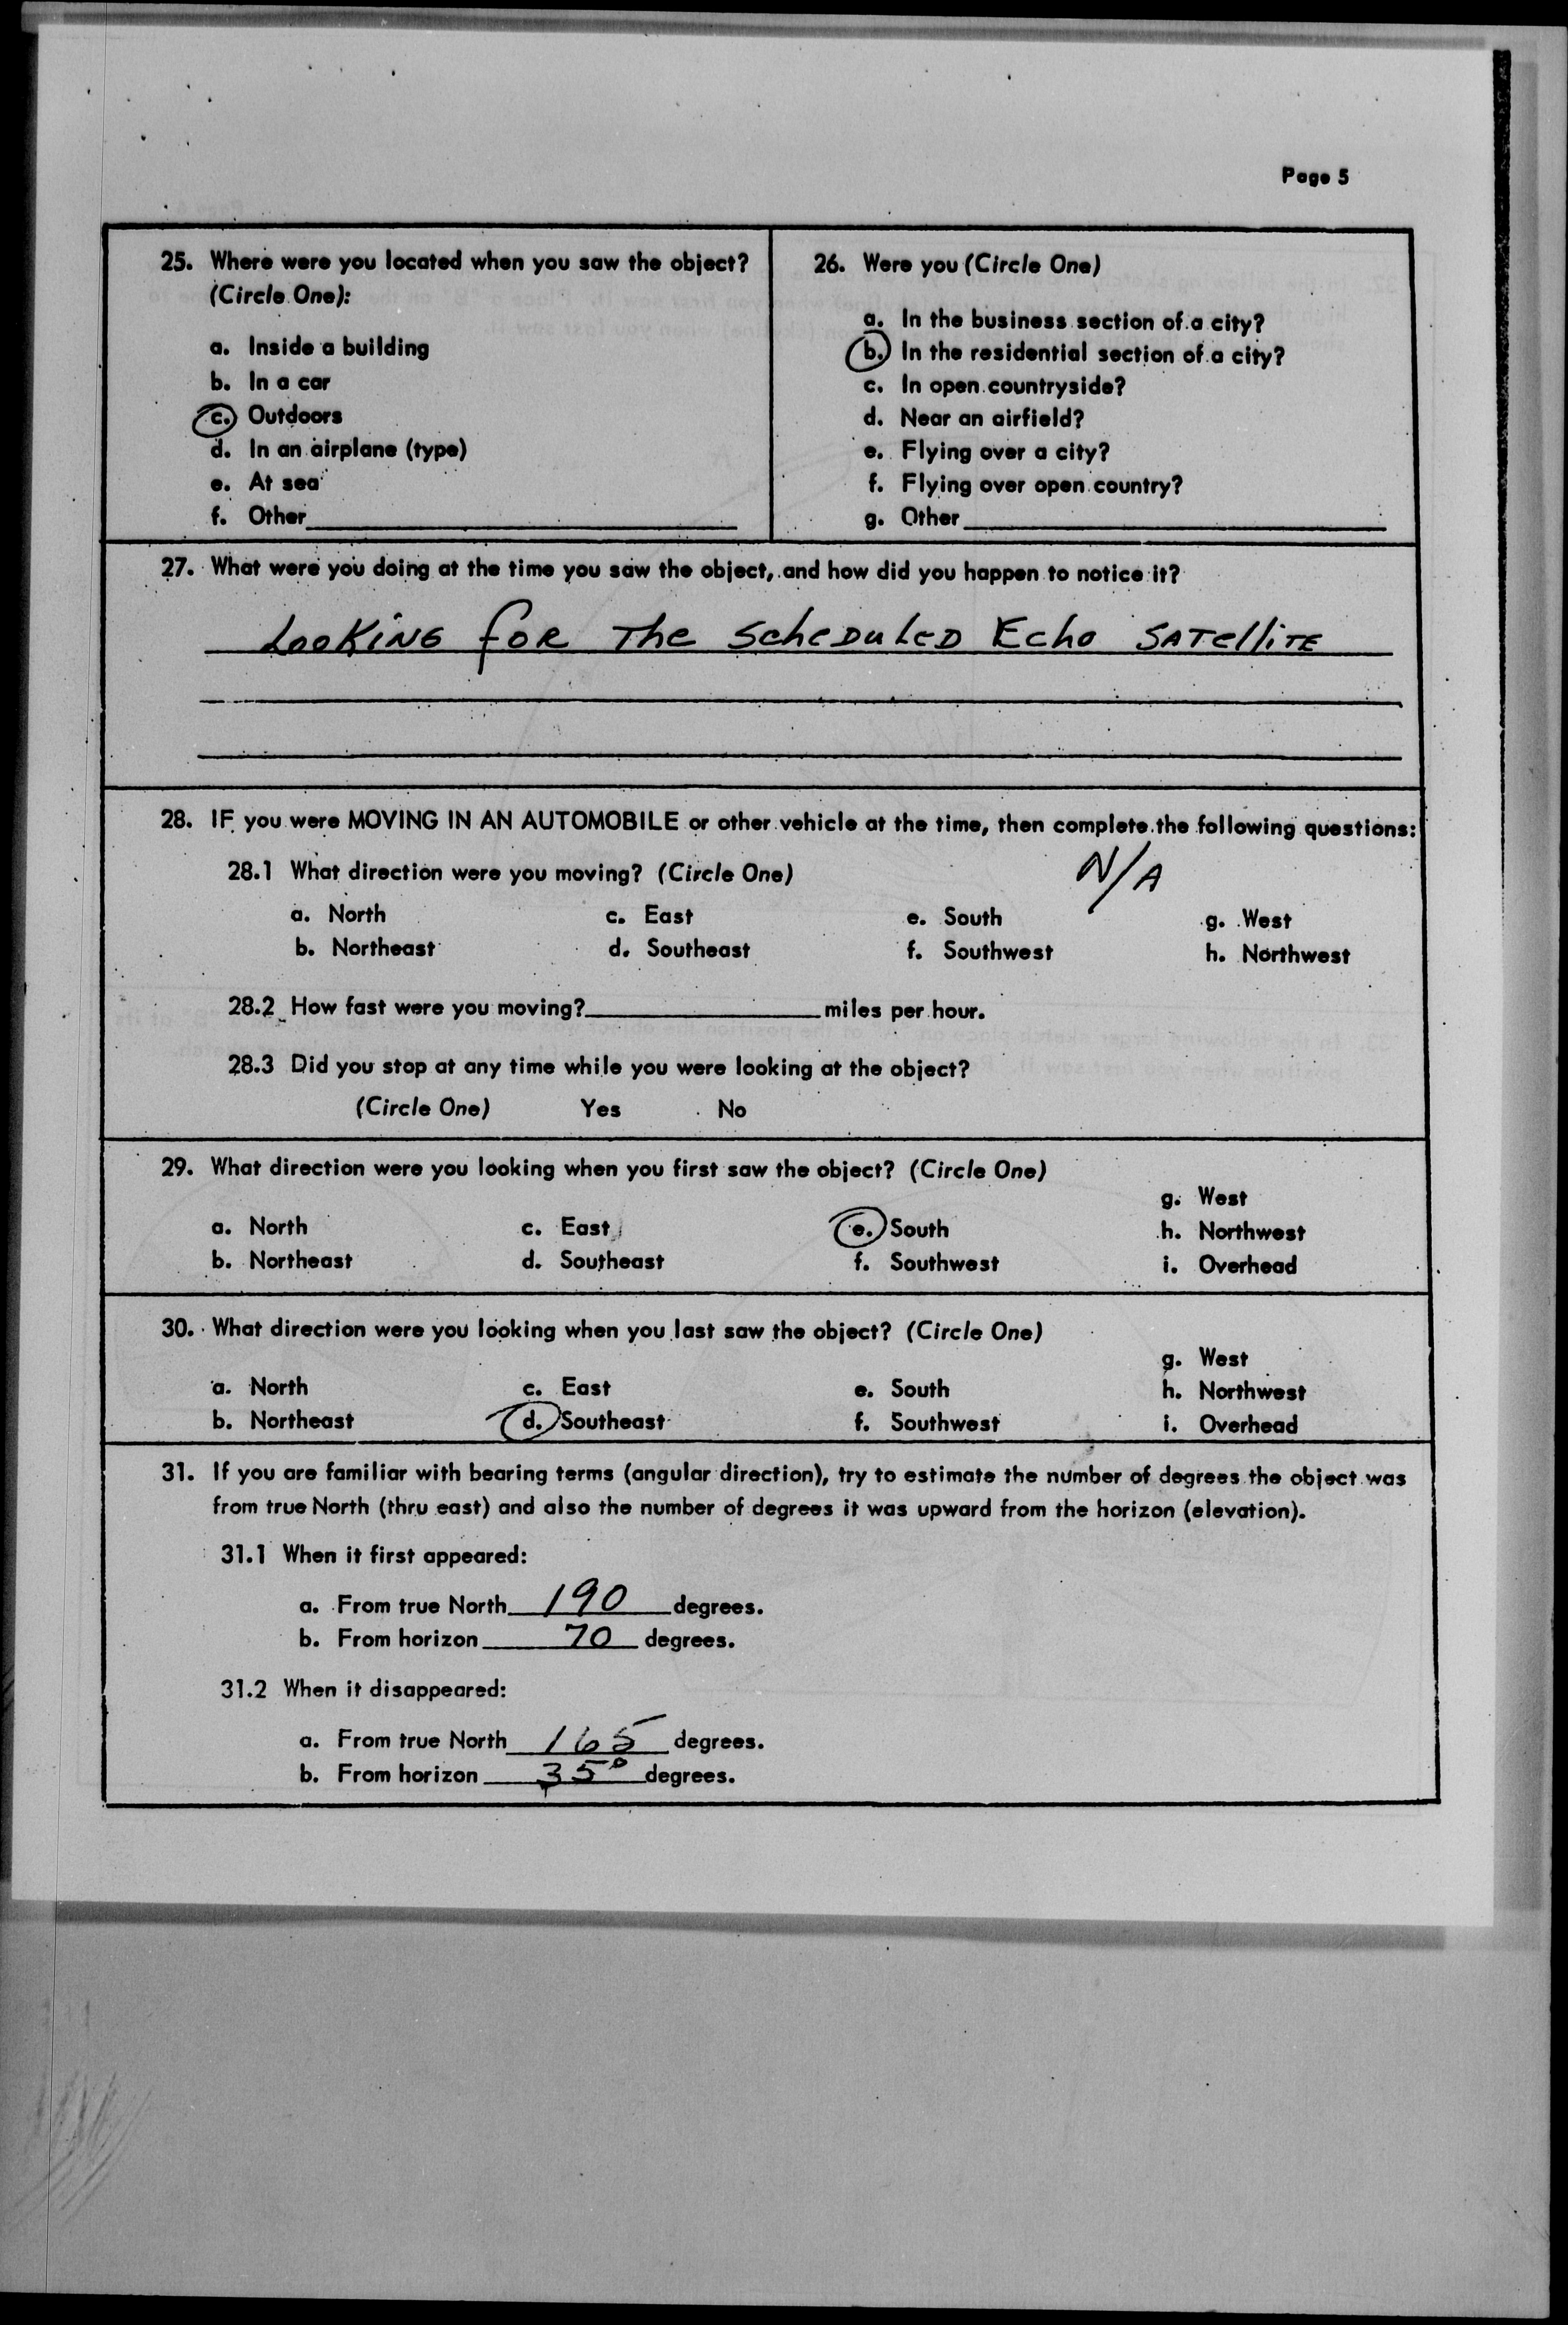 Page 5
25. Where were you located when you saw the object?
(Circle One):
a. Inside a building
b. In a car
c. Outdoors
d. In an airplane (type)
e. At sea
f. Other
26. Were you (Circle One)
a. In the business section of a city?
b. In the residential section of a city?
c. In open countryside?
d. Near an airfield?
e. Flying over a city?
f. Flying over open country?
g. Other
27. What were you doing at the time you saw the object, and how did you happen to notice it?
LOOKING FOR THE SCHEDULED ECHO SATELLITE
28. IF you were MOVING IN AN AUTOMOBILE or other vehicle at the time, then complete the following questions:
N/A
28.1 What direction were you moving? (Circle One)
a. North c. East e. South g. West
b. Northeast d. Southeast f. Southwest h. Northwest
28.2 How fast were you moving? miles per hour.
28.3 Did you stop at any time while you were looking at the object?
(Circle One) Yes No
29. What direction were you looking when you first saw the object? (Circle One)
g. West
a. North c. East e. South h. Northwest
b. Northeast d. Southeast f. Southwest i. Overhead
30. What direction were you looking when you last saw the object? (Circle One)
g. West
a. North c. East e. South h. Northwest
b. Northeast d. Southeast f. Southwest i. Overhead
31. If you are familiar with bearing terms (angular direction), try to estimate the number of degrees the object was
from true North (thru east) and also the number of degrees it was upward from the horizon (elevation).
31.1 When it first appeared:
a. From true North 190 degrees.
b. From horizon 70 degrees.
31.2 When it disappeared:
a. From true North 165 degrees.
b. From horizon 35° degrees.